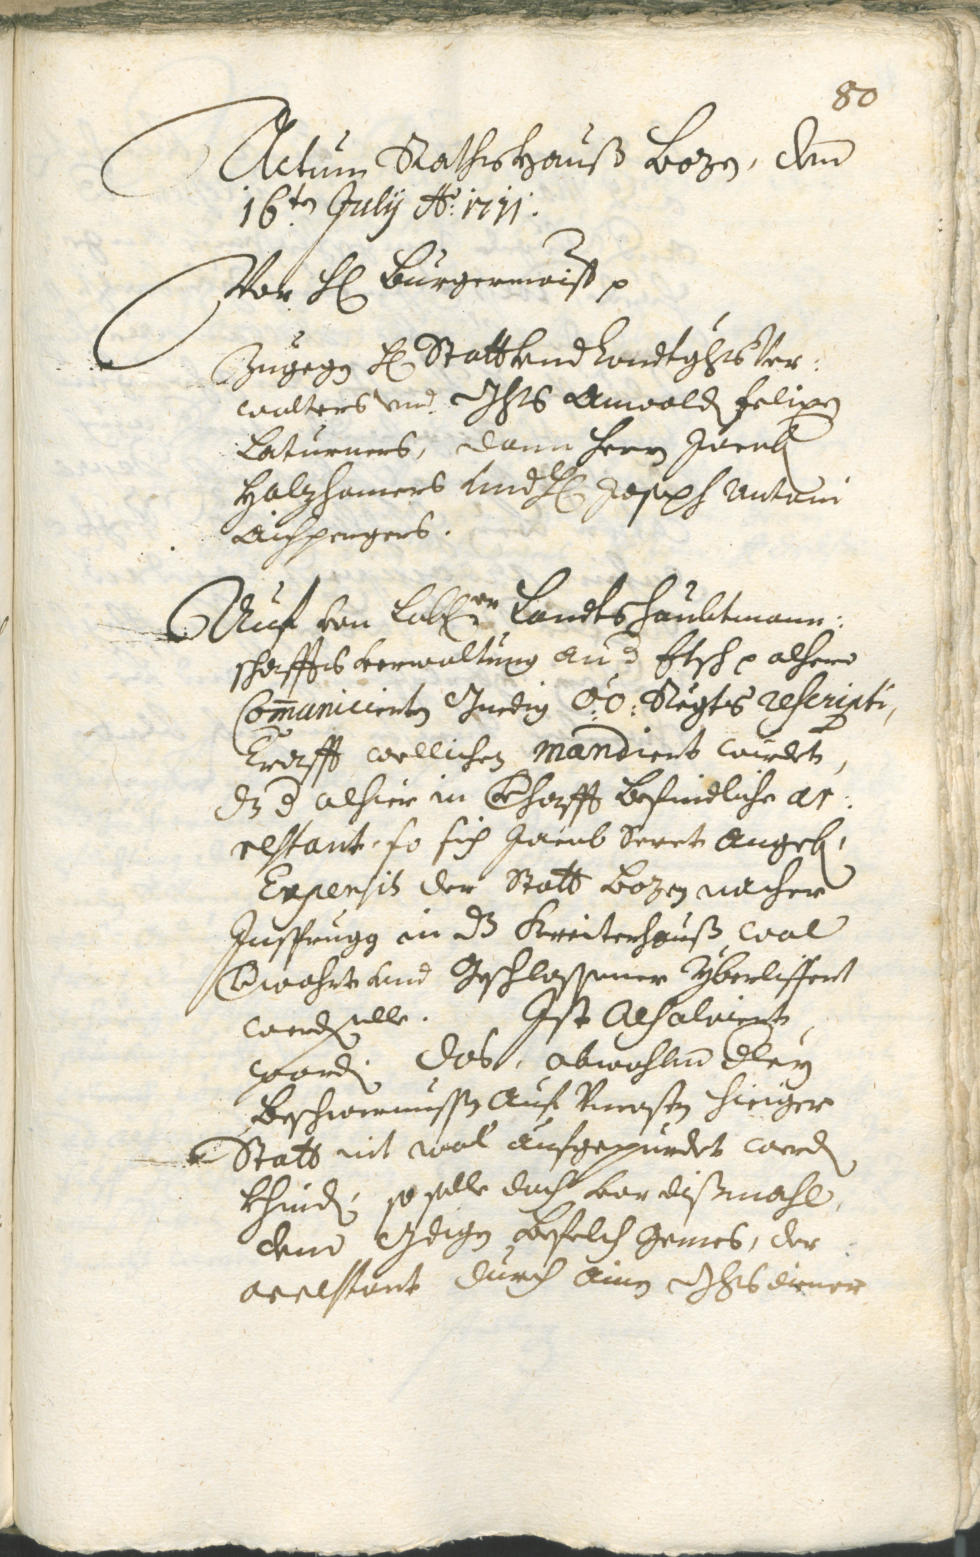 80
Actum Rathshauß Bozen, den
16ten July Ao: 1711.
Vor H Burgermaist p
Zugegen H Statt und Landtghts Ver:
walters und Ghts Anwald Felixen
Laturners, dann Herrn Jacob
Holzhamers und H Joseph Antoni
Aichpergers.
Auf von Lobl:er Landtshaubtmann:
schaffts verwaltung an d Etsch p alhero
Communicierten Gnedig O:Ö: Regts rescripti,
Crafft wellichen mandiert wirdet,
dz d alhier in Verhafft befindliche ar:
restant, so sich Jacob Seret angeb,
Expensis der Statt Bozen nacher
Insprugg in dz Kreiterhauß wol
verwahrt und geschlossener yberliffert
werden solle. Ist Resolviert
worden: das, obwohlen dley
Beschwernussen auf Vnkosten hieiger
Statt nit wol aufgepurdet werden
khinden, so solle doch vor dißmahl,
dem Gdigen Befelch gemes, der
arrestant durch ainen Ghtsdiener